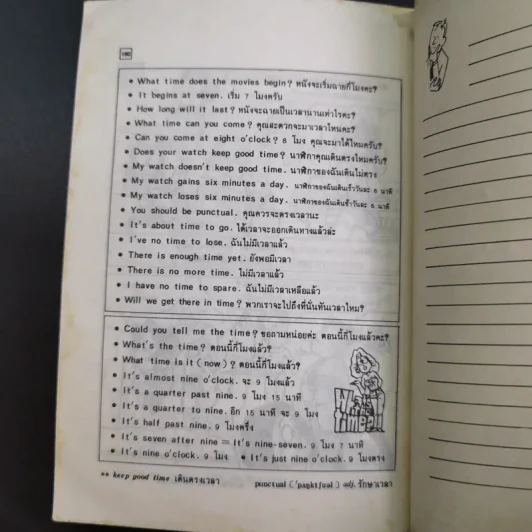 190
• What time does the movies begin? หนังจะเริ่มฉายกี่โมงคะ?
• It begins at seven. เริ่ม 7 โมงครับ
• How long will it last? หนังจะฉายเป็นเวลานานเท่าไรคะ?
• What time can you come? คุณสะดวกจะมาเวลาไหนคะ?
• Can you come at eight o'clock? 8 โมง คุณจะมาได้ไหมครับ?
• Does your watch keep good time? นาฬิกาคุณเดินตรงไหมครับ?
• My watch doesn't keep good time. นาฬิกาของฉันเดินไม่ตรง
• My watch gains six minutes a day. นาฬิกาของฉันเดินเร็ววันละ 6 นาที
• My watch loses six minutes a day. นาฬิกาของฉันเดินช้าวันละ 6 นาที
• You should be punctual. คุณควรจะตรงเวลานะ
• It's about time to go. ได้เวลาจะออกเดินทางแล้วล่ะ
• I've no time to lose. ฉันไม่มีเวลาแล้ว
• There is enough time yet. ยังพอมีเวลา
• There is no more time. ไม่มีเวลาแล้ว
• I have no time to spare. ฉันไม่มีเวลาเหลือแล้ว
• Will we get there in time? พวกเราจะไปถึงที่นั่นทันเวลาไหม?
• Could you tell me the time? ขอถามหน่อยค่ะ ตอนนี้กี่โมงแล้วคะ?
• What's the time? ตอนนี้กี่โมงแล้ว?
• What time is it (now)? ตอนนี้กี่โมงแล้ว?
• It's almost nine o'clock. จะ 9 โมงแล้ว
• It's a quarter past nine. 9 โมง 15 นาที
• It's a quarter to nine. อีก 15 นาที จะ 9 โมง
• It's half past nine. 9 โมงครึ่ง
• It's seven after nine = It's nine-seven. 9 โมง 7 นาที
• It's nine o'clock. 9 โมง • It's just nine o'clock. 9 โมงตรง
** keep good time เดินตรงเวลา punctual ('pʌŋktʃuəl) adj. รักษาเวลา